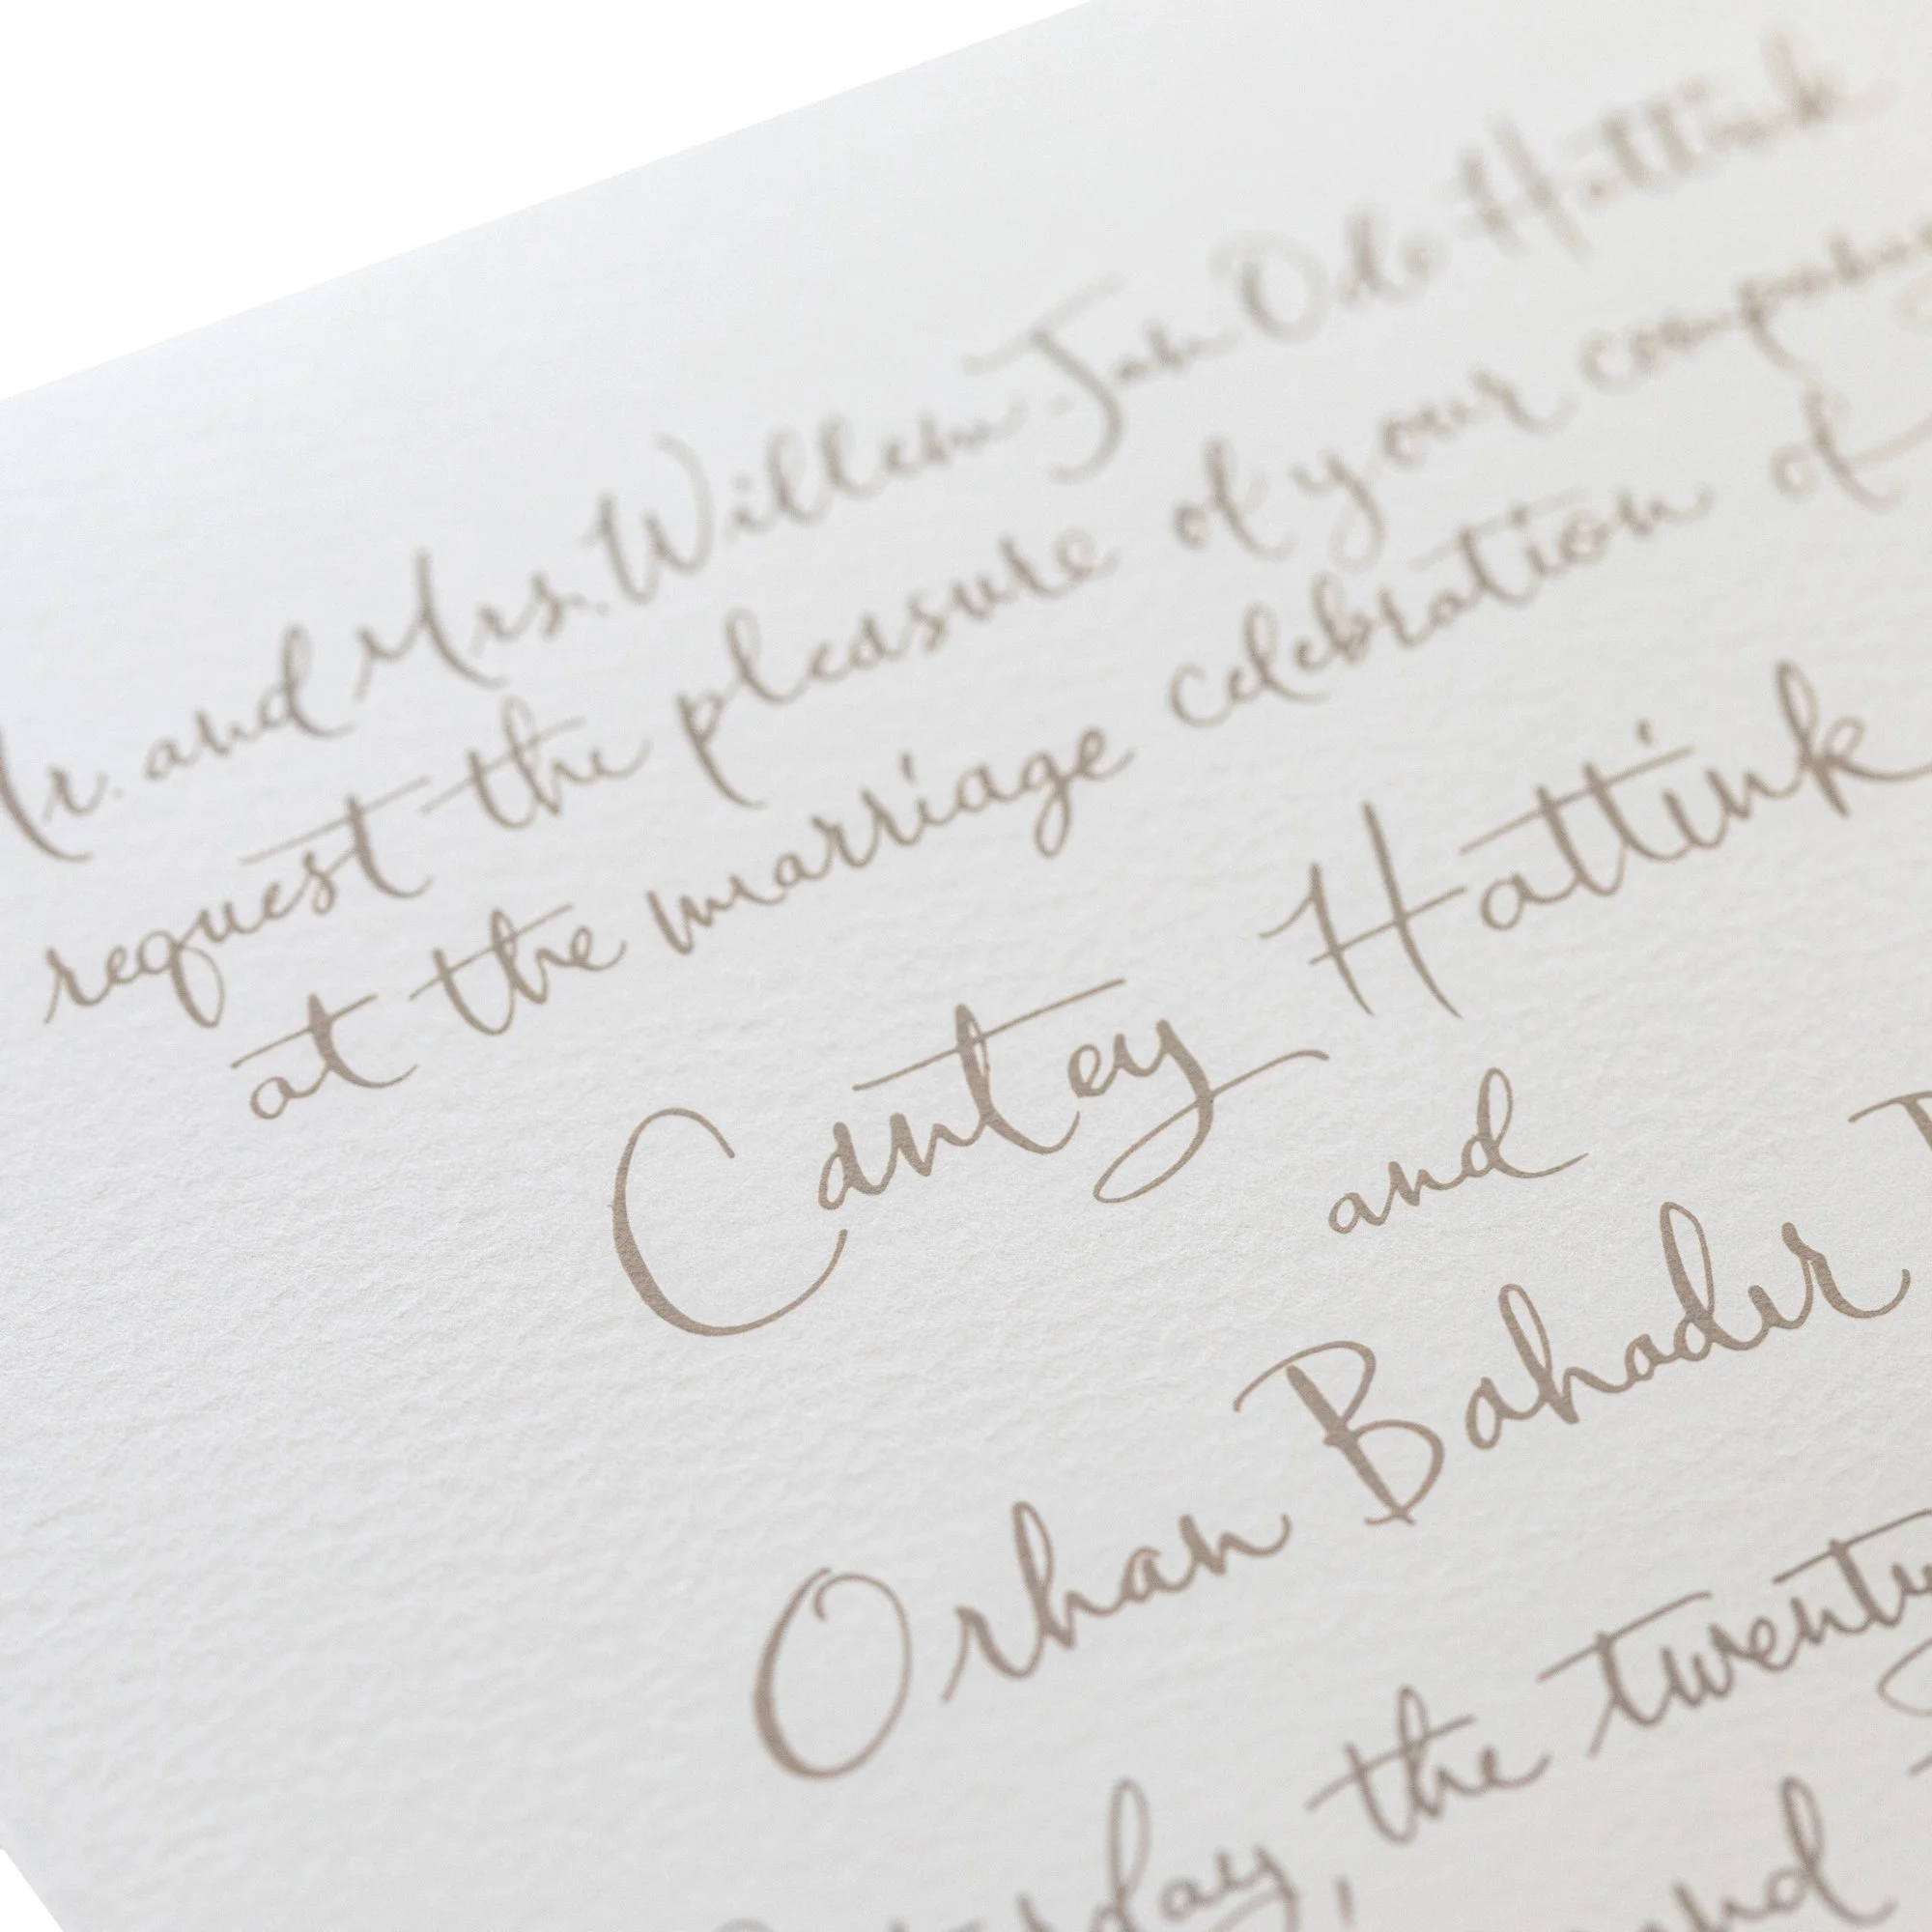 Mr. and Mrs. Willem-Jan Ode Hattink
request the pleasure of your company
at the marriage celebration of
Cantey Hattink
and
Orhan Bahadir
the twenty